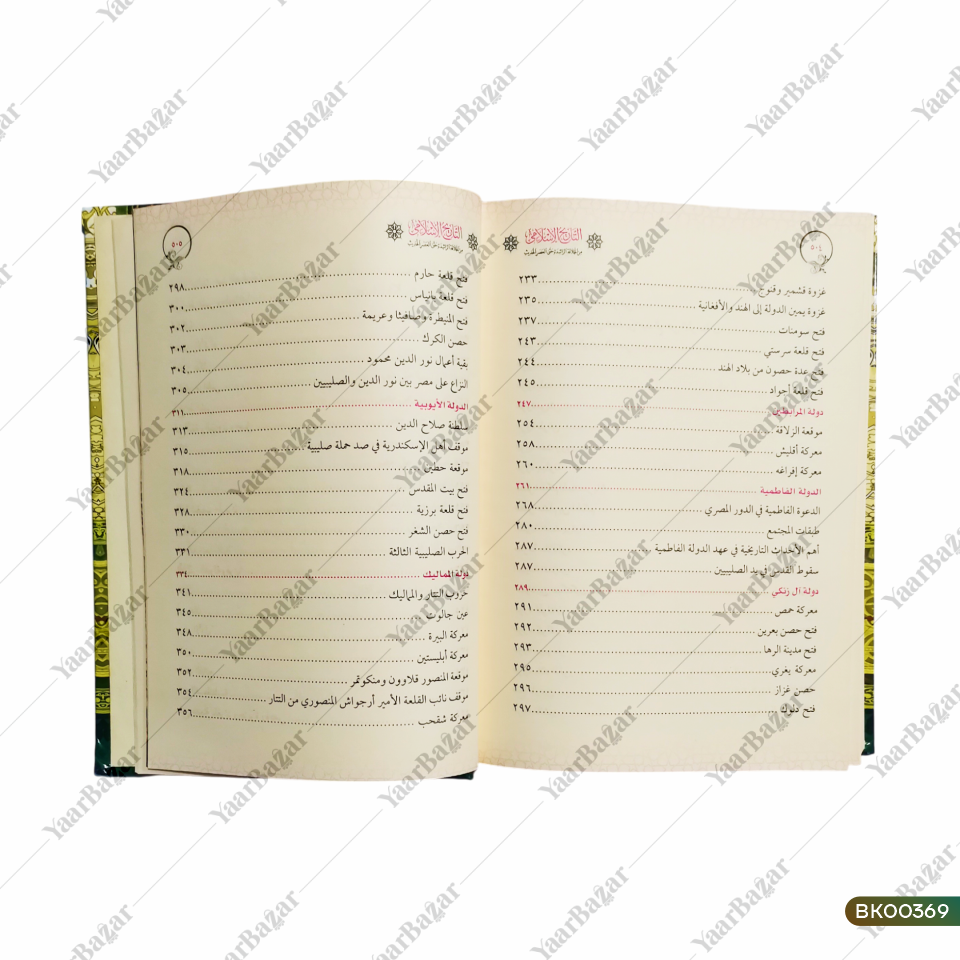 ٥٠٤
التاريخ الإسلامي
غزوة قشمير وقنوج ٢٣٣
غزوة يمين الدولة إلى الهند والأفغانية ٢٣٥
فتح سومنات ٢٣٧
فتح قلعة سرستي ٢٤٣
فتح عدة حصون من بلاد الهند ٢٤٤
فتح قلعة أجواد ٢٤٥
دولة المرابطين ٢٤٧
موقعة الزلاقة ٢٥٤
معركة أقليش ٢٥٨
معركة إفراغه ٢٦٠
الدولة الفاطمية ٢٦١
الدعوة الفاطمية في الدور المصري ٢٦٨
طبقات المجتمع ٢٨٠
أهم الأحداث التاريخية في عهد الدولة الفاطمية ٢٨٧
سقوط القدس في يد الصليبيين ٢٨٧
دولة آل زنكي ٢٨٩
معركة حمص ٢٩١
فتح حصن بعرين ٢٩٢
فتح مدينة الرها ٢٩٣
معركة يغري ٢٩٥
حصن عزاز ٢٩٦
فتح دلوك ٢٩٧
التاريخ الإسلامي
٥٠٥
فتح قلعة حارم ٢٩٨
فتح قلعة بانياس ٣٠٠
فتح المنيطرة وصافيثا وعريمة ٣٠٢
حصن الكرك ٣٠٣
بقية أعمال نور الدين محمود ٣٠٤
النزاع على مصر بين نور الدين والصليبيين ٣٠٥
الدولة الأيوبية ٣١١
سلطنة صلاح الدين ٣١٣
موقف أهل الإسكندرية في صد حملة صليبية ٣١٥
موقعة حطين ٣١٨
فتح بيت المقدس ٣٢٤
فتح قلعة برزية ٣٢٨
فتح حصن الشغر ٣٣٠
الحرب الصليبية الثالثة ٣٣١
دولة المماليك ٣٣٤
حروب التتار والمماليك ٣٤١
عين جالوت ٣٤٥
معركة البيرة ٣٤٨
معركة أبليستين ٣٥٠
موقعة المنصور قلاوون ومنكوتمر ٣٥٢
موقف نائب القلعة الأمير أرجواش المنصوري من التتار ٣٥٤
معركة شقحب ٣٥٦
YaarBazar
BK00369